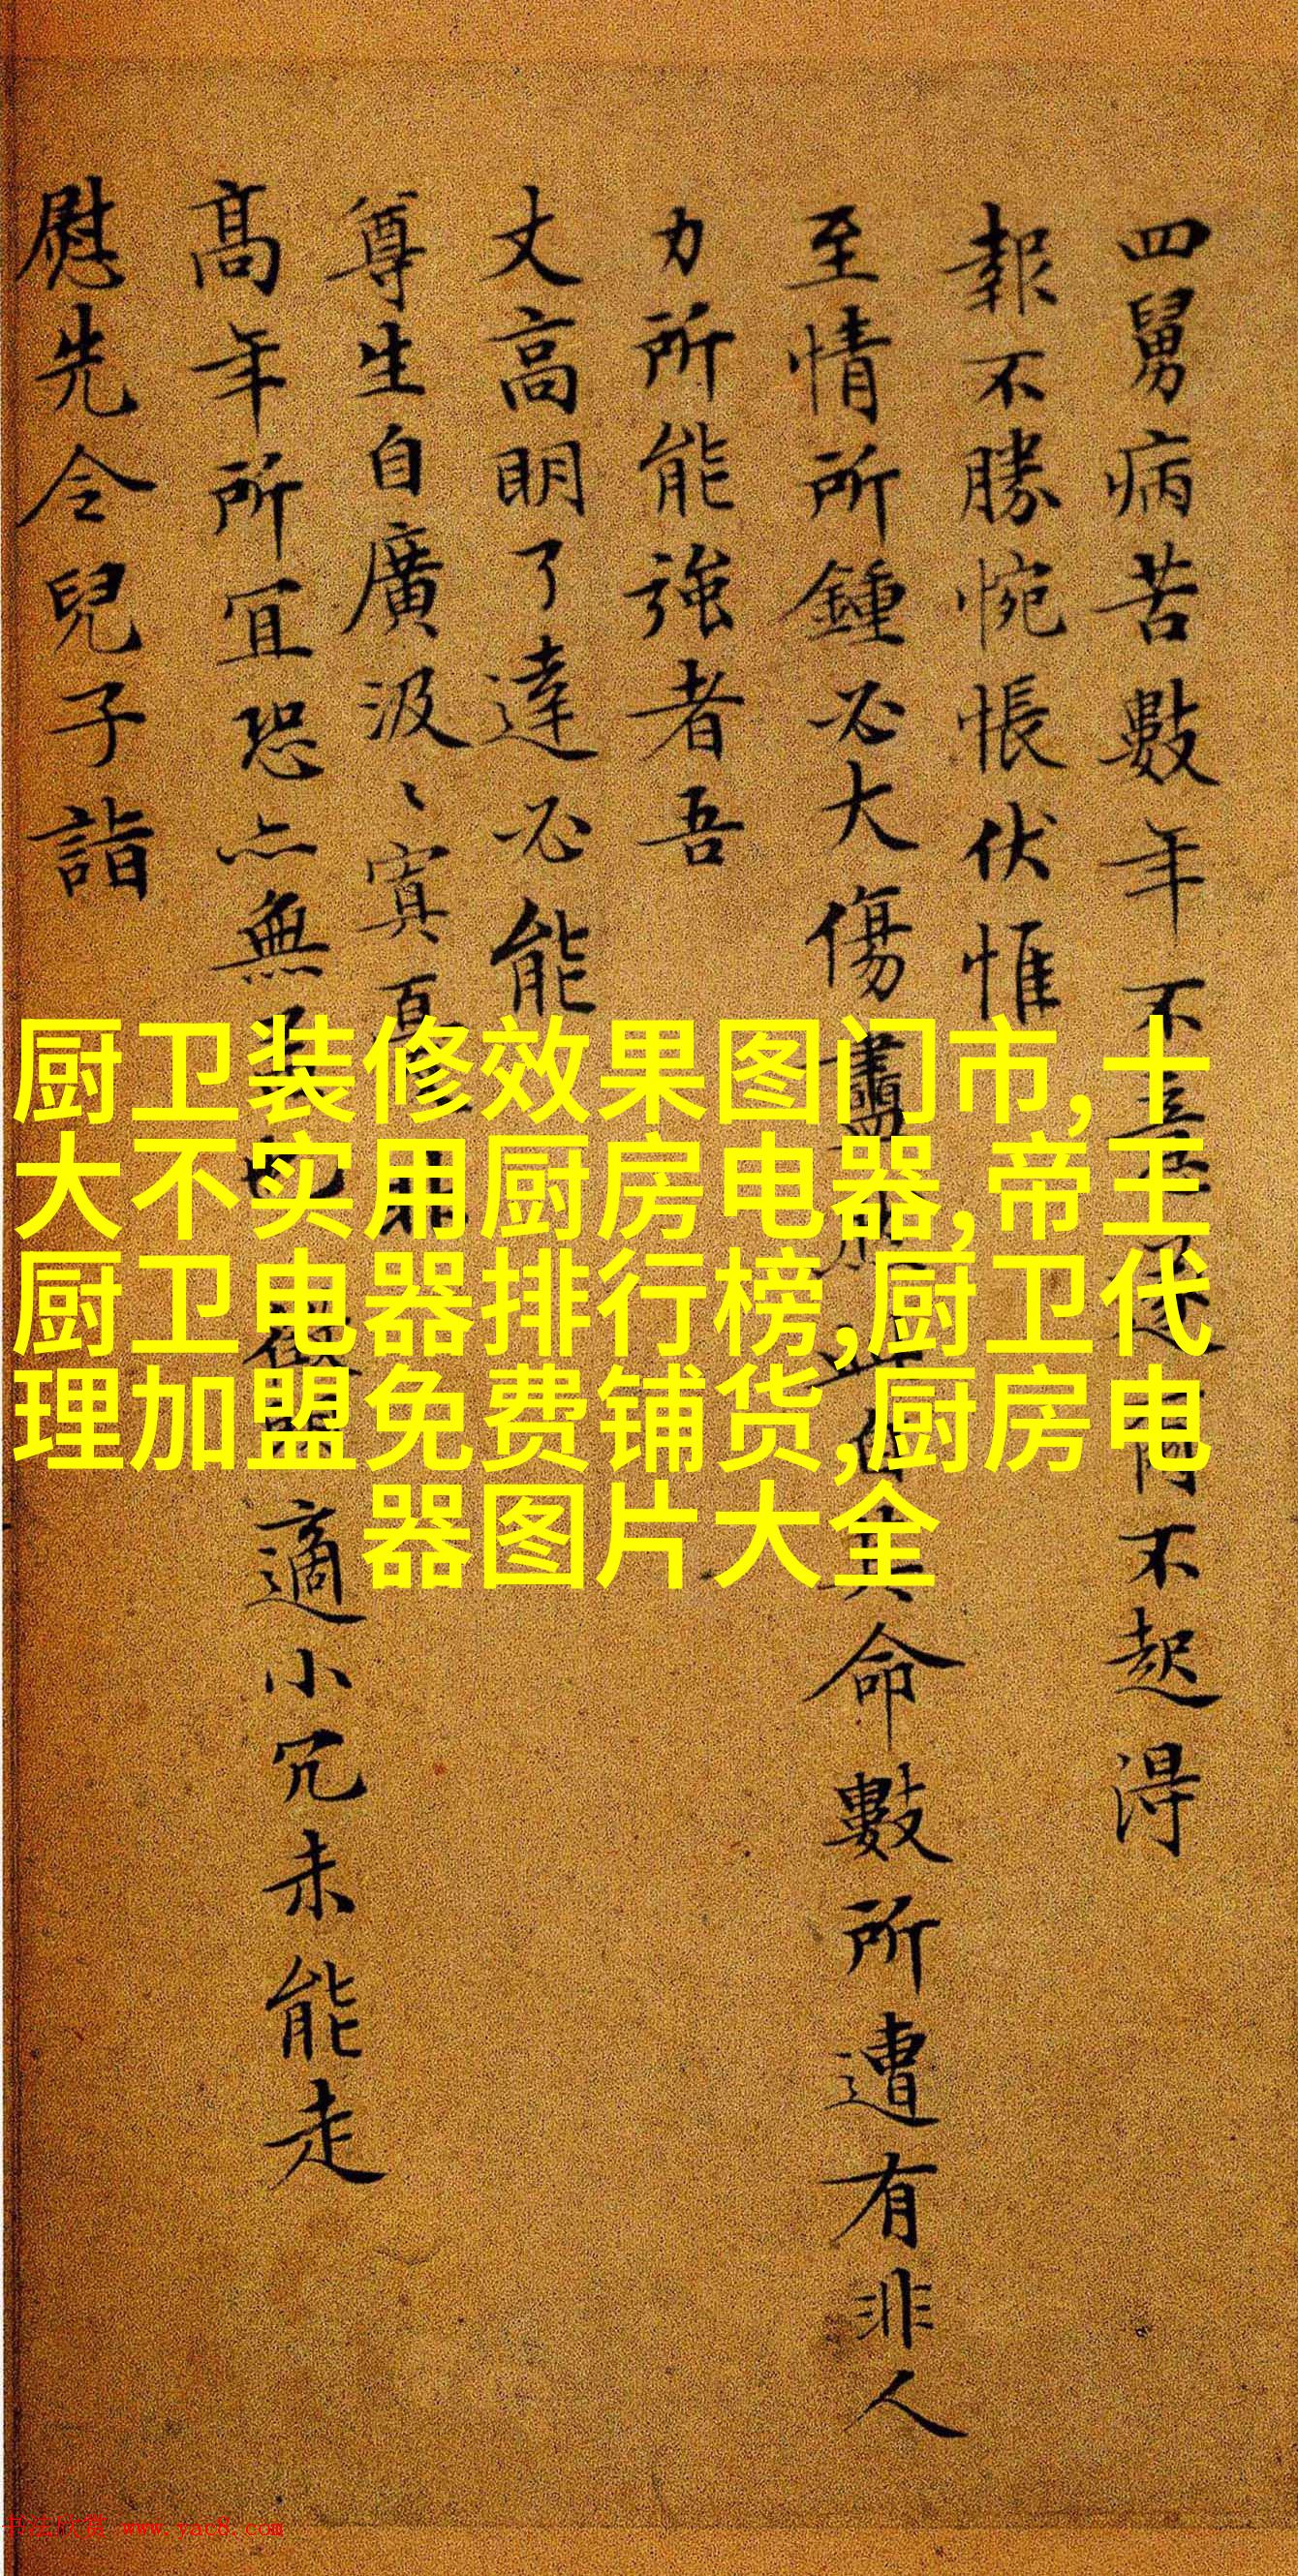 四舅病苦數年不
不起得
報不勝惋悵伏惟
至情所鍾必大傷
命數所遭有非人
力所能強者吾
丈高明了達必能
尊生自廣汲〻寘
高年所宜恐亦無
適小冗未能走
慰先令兒子詣
厨卫装修效果图门市,十
大不实用厨房电器,帝王
厨卫电器排行榜,厨卫代
理加盟免费铺货,厨房电
器图片大全
书法欣赏 www.yac8.com